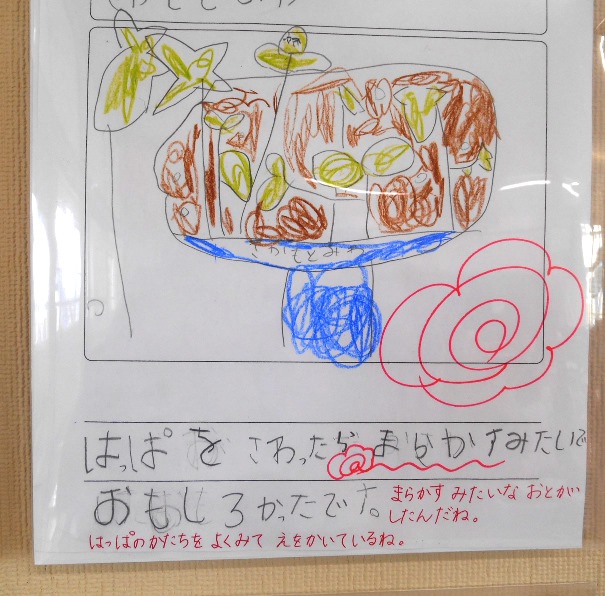 はっぱを さわったら まらかすみたいで
おもしろかったです。
まらかす みたいな おとが
したんだね。
はっぱのかたちを よくみて えをかいているね。